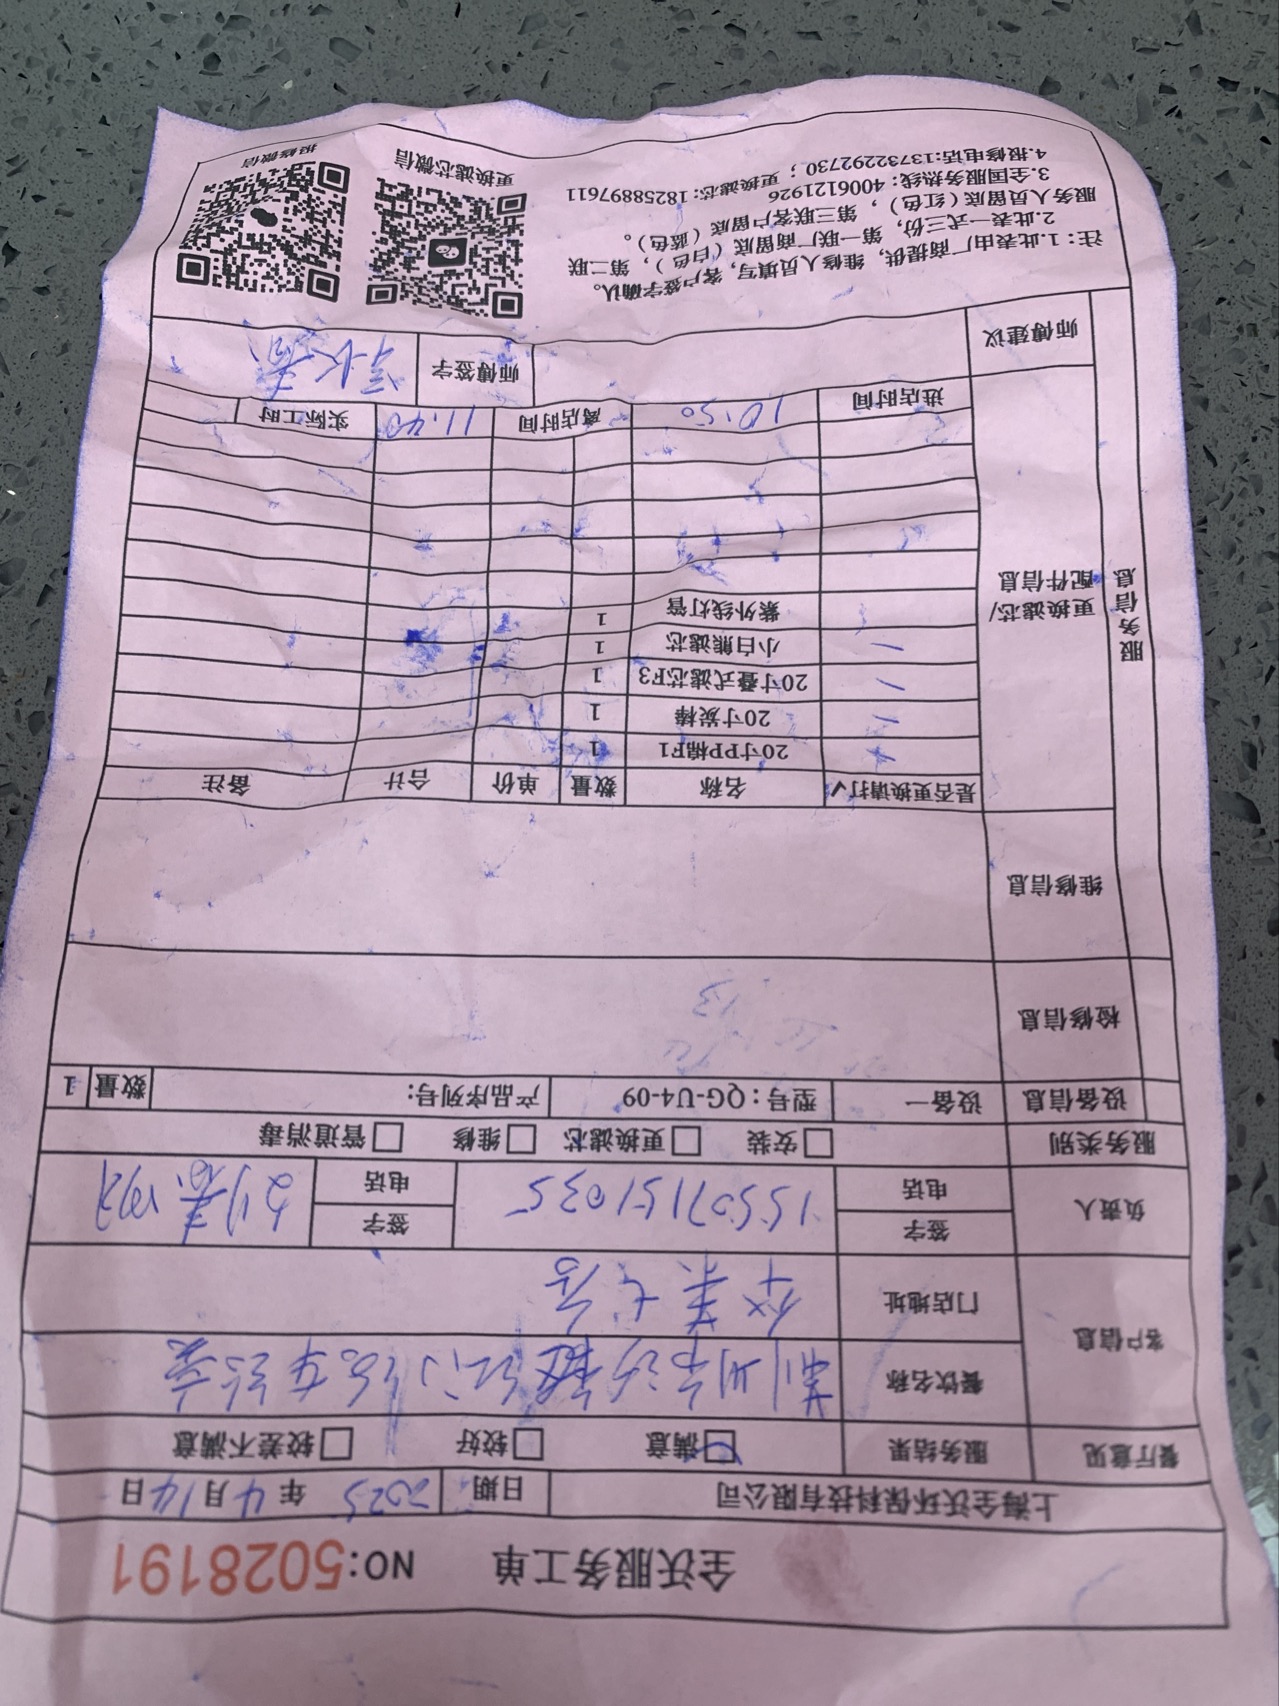 全沃服务工单 NO:5028191
上海全沃环保科技有限公司 日期 2025 年 4 月 14 日
餐厅意见 服务结果 满意 较好 较差不满意
客户信息 餐饮名称 荆州
门店地址
负责人 签字 签字
电话 15507151035 电话
服务类别 安装 更换滤芯 维修 管道消毒
设备信息 设备一 型号：QG-U4-09 产品序列号: 数量 1
检修信息
维修信息
服务信息
更换滤芯/配件信息
是否更换请打√ 名称 数量 单价 合计 备注
20寸PP棉F1 1
20寸炭棒 1
20寸叠式滤芯F3 1
小白熊滤芯 1
紫外线灯管 1
进店时间 10:50 离店时间 11:40 实际工时
师傅建议 师傅签字
注：1.此表由厂商提供，维修人员填写，客户签字确认。
2.此表一式三份，第一联厂商留底（白色），第二联
服务人员留底（红色），第三联客户留底（蓝色）。
3.全国服务热线：4006121926
4.报修电话:13732292730；更换滤芯：18258897611
更换滤芯微信
报修微信